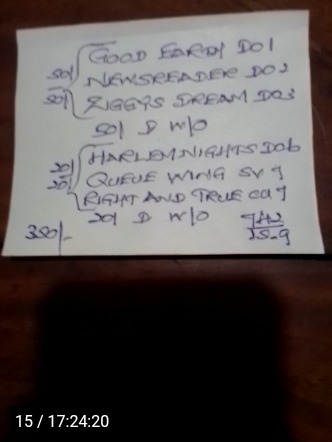 50/ GOOD EARDY DO1
50/ NEWSREADER DO2
ZIGGYS DREAM DO3
50/ D W/O
20/ HARLEM NIGHTS DO6
20/ QUEUE WING SV 9
RIGHT AND TRUE CA 9
20/ D W/O
350/-
15-9
15 / 17:24:20